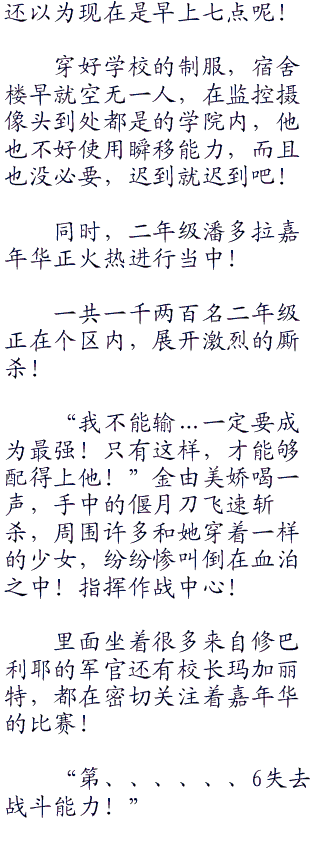 还以为现在是早上七点呢！
穿好学校的制服，宿舍
楼早就空无一人，在监控摄
像头到处都是的学院内，他
也不好使用瞬移能力，而且
也没必要，迟到就迟到吧！
同时，二年级潘多拉嘉
年华正火热进行当中！
一共一千两百名二年级
正在个区内，展开激烈的厮
杀！
“我不能输…一定要成
为最强！只有这样，才能够
配得上他！”金由美娇喝一
声，手中的偃月刀飞速斩
杀，周围许多和她穿着一样
的少女，纷纷惨叫倒在血泊
之中！指挥作战中心！
里面坐着很多来自修巴
利耶的军官还有校长玛加丽
特，都在密切关注着嘉年华
的比赛！
“第、、、、、、6失去
战斗能力！”